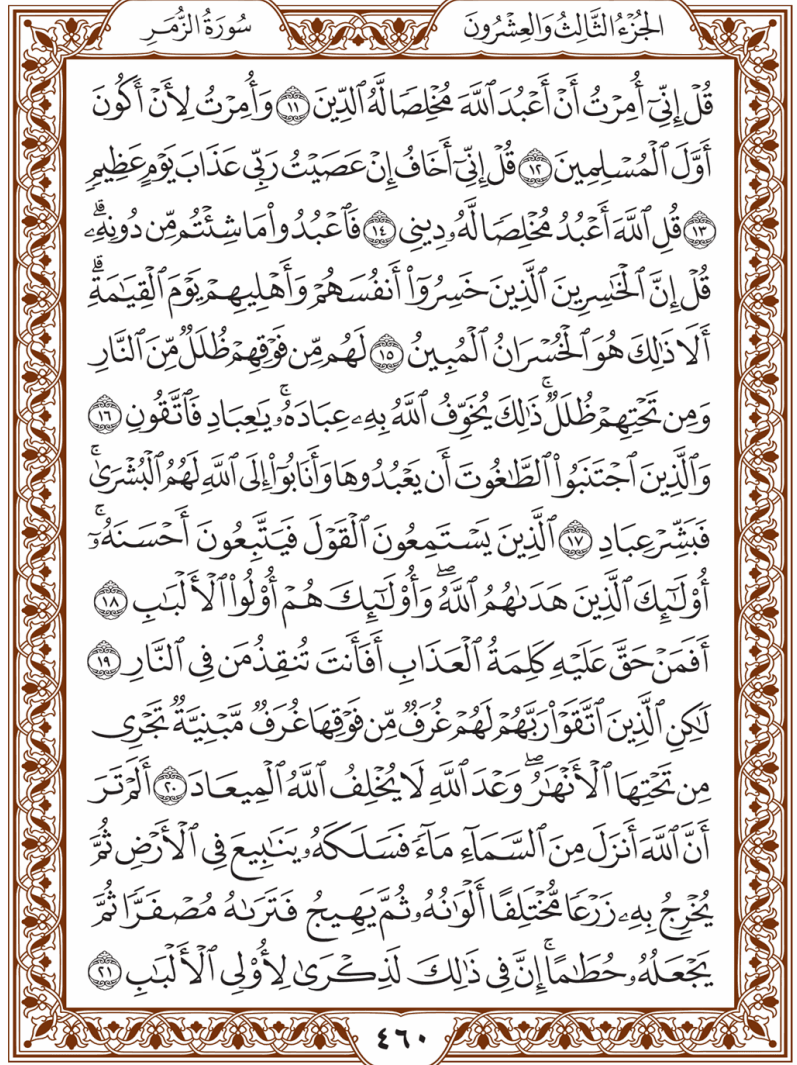 الجُزْءُ الثَّالِثُ وَالعِشْرُونَ
سُورَةُ الزُّمَرِ
قُلْ إِنِّيٓ أُمِرْتُ أَنْ أَعْبُدَ ٱللَّهَ مُخْلِصًا لَّهُ ٱلدِّينَ ١١ وَأُمِرْتُ لِأَنْ أَكُونَ
أَوَّلَ ٱلْمُسْلِمِينَ ١٢ قُلْ إِنِّيٓ أَخَافُ إِنْ عَصَيْتُ رَبِّي عَذَابَ يَوْمٍ عَظِيمٍ
١٣ قُلِ ٱللَّهَ أَعْبُدُ مُخْلِصًا لَّهُۥ دِينِي ١٤ فَٱعْبُدُوا۟ مَا شِئْتُم مِّن دُونِهِۦۗ
قُلْ إِنَّ ٱلْخَـٰسِرِينَ ٱلَّذِينَ خَسِرُوٓا۟ أَنفُسَهُمْ وَأَهْلِيهِمْ يَوْمَ ٱلْقِيَـٰمَةِۗ
أَلَا ذَٰلِكَ هُوَ ٱلْخُسْرَانُ ٱلْمُبِينُ ١٥ لَهُم مِّن فَوْقِهِمْ ظُلَلٌ مِّنَ ٱلنَّارِ
وَمِن تَحْتِهِمْ ظُلَلٌۚ ذَٰلِكَ يُخَوِّفُ ٱللَّهُ بِهِۦ عِبَادَهُۥۚ يَـٰعِبَادِ فَٱتَّقُونِ ١٦
وَٱلَّذِينَ ٱجْتَنَبُوا۟ ٱلطَّـٰغُوتَ أَن يَعْبُدُوهَا وَأَنَابُوٓا۟ إِلَى ٱللَّهِ لَهُمُ ٱلْبُشْرَىٰۚ
فَبَشِّرْ عِبَادِ ١٧ ٱلَّذِينَ يَسْتَمِعُونَ ٱلْقَوْلَ فَيَتَّبِعُونَ أَحْسَنَهُۥٓۚ
أُو۟لَـٰٓئِكَ ٱلَّذِينَ هَدَىٰهُمُ ٱللَّهُۖ وَأُو۟لَـٰٓئِكَ هُمْ أُو۟لُوا۟ ٱلْأَلْبَـٰبِ ١٨
أَفَمَنْ حَقَّ عَلَيْهِ كَلِمَةُ ٱلْعَذَابِ أَفَأَنتَ تُنقِذُ مَن فِي ٱلنَّارِ ١٩
لَـٰكِنِ ٱلَّذِينَ ٱتَّقَوْا۟ رَبَّهُمْ لَهُمْ غُرَفٌ مِّن فَوْقِهَا غُرَفٌ مَّبْنِيَّةٌ تَجْرِي
مِن تَحْتِهَا ٱلْأَنْهَـٰرُۖ وَعْدَ ٱللَّهِ لَا يُخْلِفُ ٱللَّهُ ٱلْمِيعَادَ ٢٠ أَلَمْ تَرَ
أَنَّ ٱللَّهَ أَنزَلَ مِنَ ٱلسَّمَآءِ مَآءً فَسَلَكَهُۥ يَنَـٰبِيعَ فِي ٱلْأَرْضِ ثُمَّ
يُخْرِجُ بِهِۦ زَرْعًا مُّخْتَلِفًا أَلْوَٰنُهُۥ ثُمَّ يَهِيجُ فَتَرَىٰهُ مُصْفَرًّا ثُمَّ
يَجْعَلُهُۥ حُطَـٰمًاۚ إِنَّ فِي ذَٰلِكَ لَذِكْرَىٰ لِأُو۟لِي ٱلْأَلْبَـٰبِ ٢١
٤٦٠